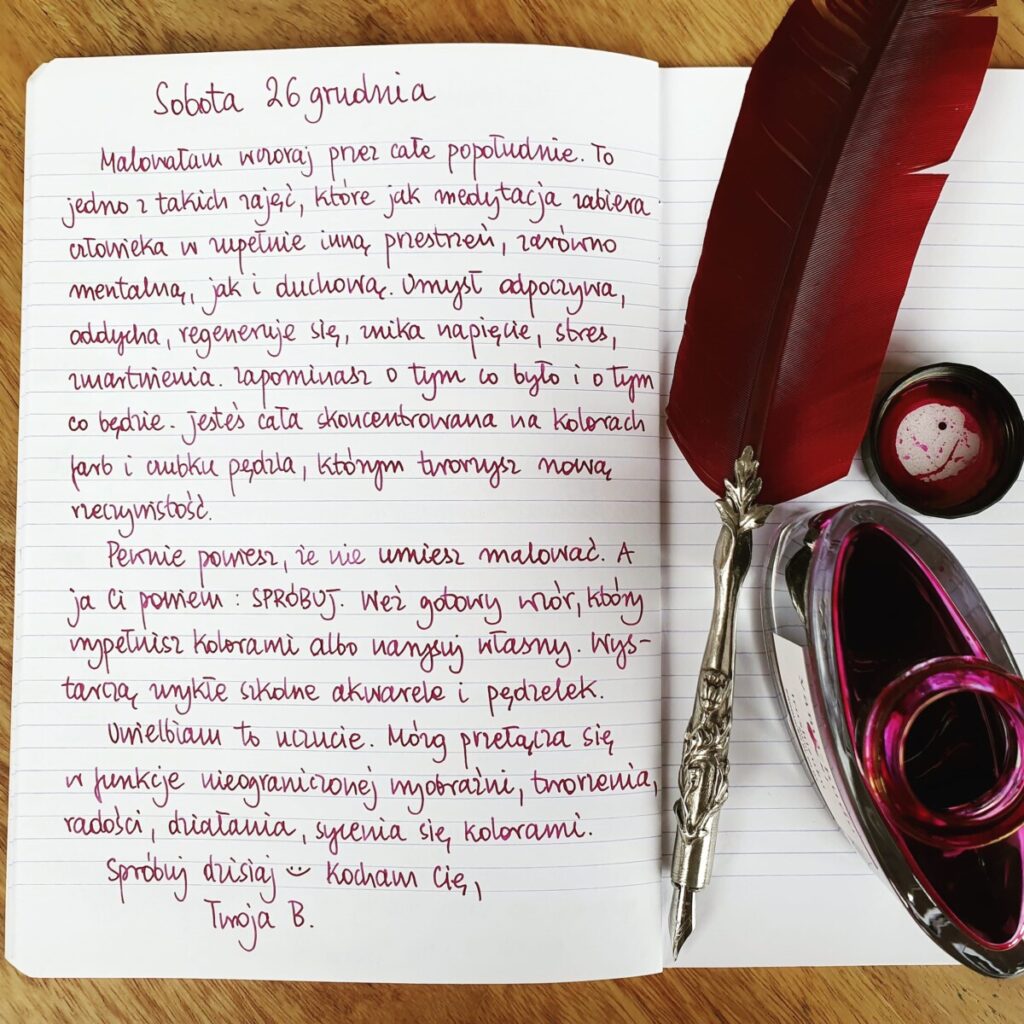 Sobota 26 grudnia
Malowałam wczoraj przez całe popołudnie. To
jedno z takich zajęć, które jak medytacja zabiera
człowieka w zupełnie inną przestrzeń, zarówno
mentalną, jak i duchową. Umysł odpoczywa,
oddycha, regeneruje się, znika napięcie, stres,
zmartwienia. Zapominasz o tym co było i o tym
co będzie. Jesteś cała skoncentrowana na kolorach
farb i czubku pędzla, którym tworzysz nową
rzeczywistość.
Pewnie powiesz, że nie umiesz malować. A
ja Ci powiem : SPRÓBUJ. Weź gotowy wzór, który
wypełnisz kolorami albo narysuj własny. Wys-
tarczą zwykłe szkolne akwarele i pędzelek.
Uwielbiam to uczucie. Mózg przełącza się
w funkcje nieograniczonej wyobraźni, tworzenia,
radości, działania, sycenia się kolorami.
Spróbuj dzisiaj :) Kocham Cię,
Twoja B.